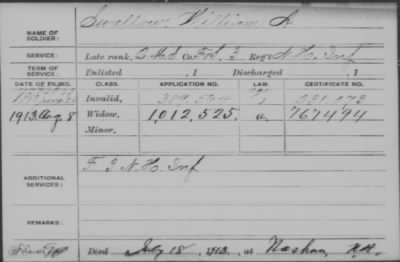 NAME OF SOLDIER: Swallow, William
SERVICE: Late rank, Co. F, 3 Reg't N.H. Inf
TERM OF SERVICE: Enlisted , 1 Discharged , 1
DATE OF FILING. CLASS. APPLICATION NO. LAW. CERTIFICATE NO.
Invalid,
1913 Aug. 8 Widow, 1,012,525. 767494
Minor,
ADDITIONAL SERVICES: F 3 N.H. Inf
REMARKS:
Died July 18, 1913, at Nashua, N.H.